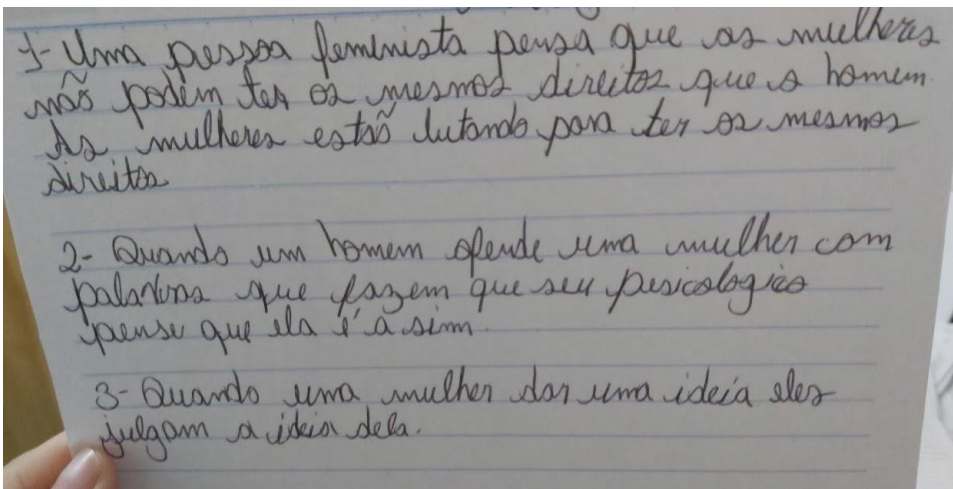 1- Uma pessoa feminista pensa que as mulheres
não podem ter os mesmos direitos que o homem.
As mulheres estão lutando para ter os mesmos
direitos
2- Quando um homem ofende uma mulher com
palavras que fazem que seu pusicologico
pense que ela é a sim.
3- Quando uma mulher dar uma ideia eles
julgam a ideia dela.